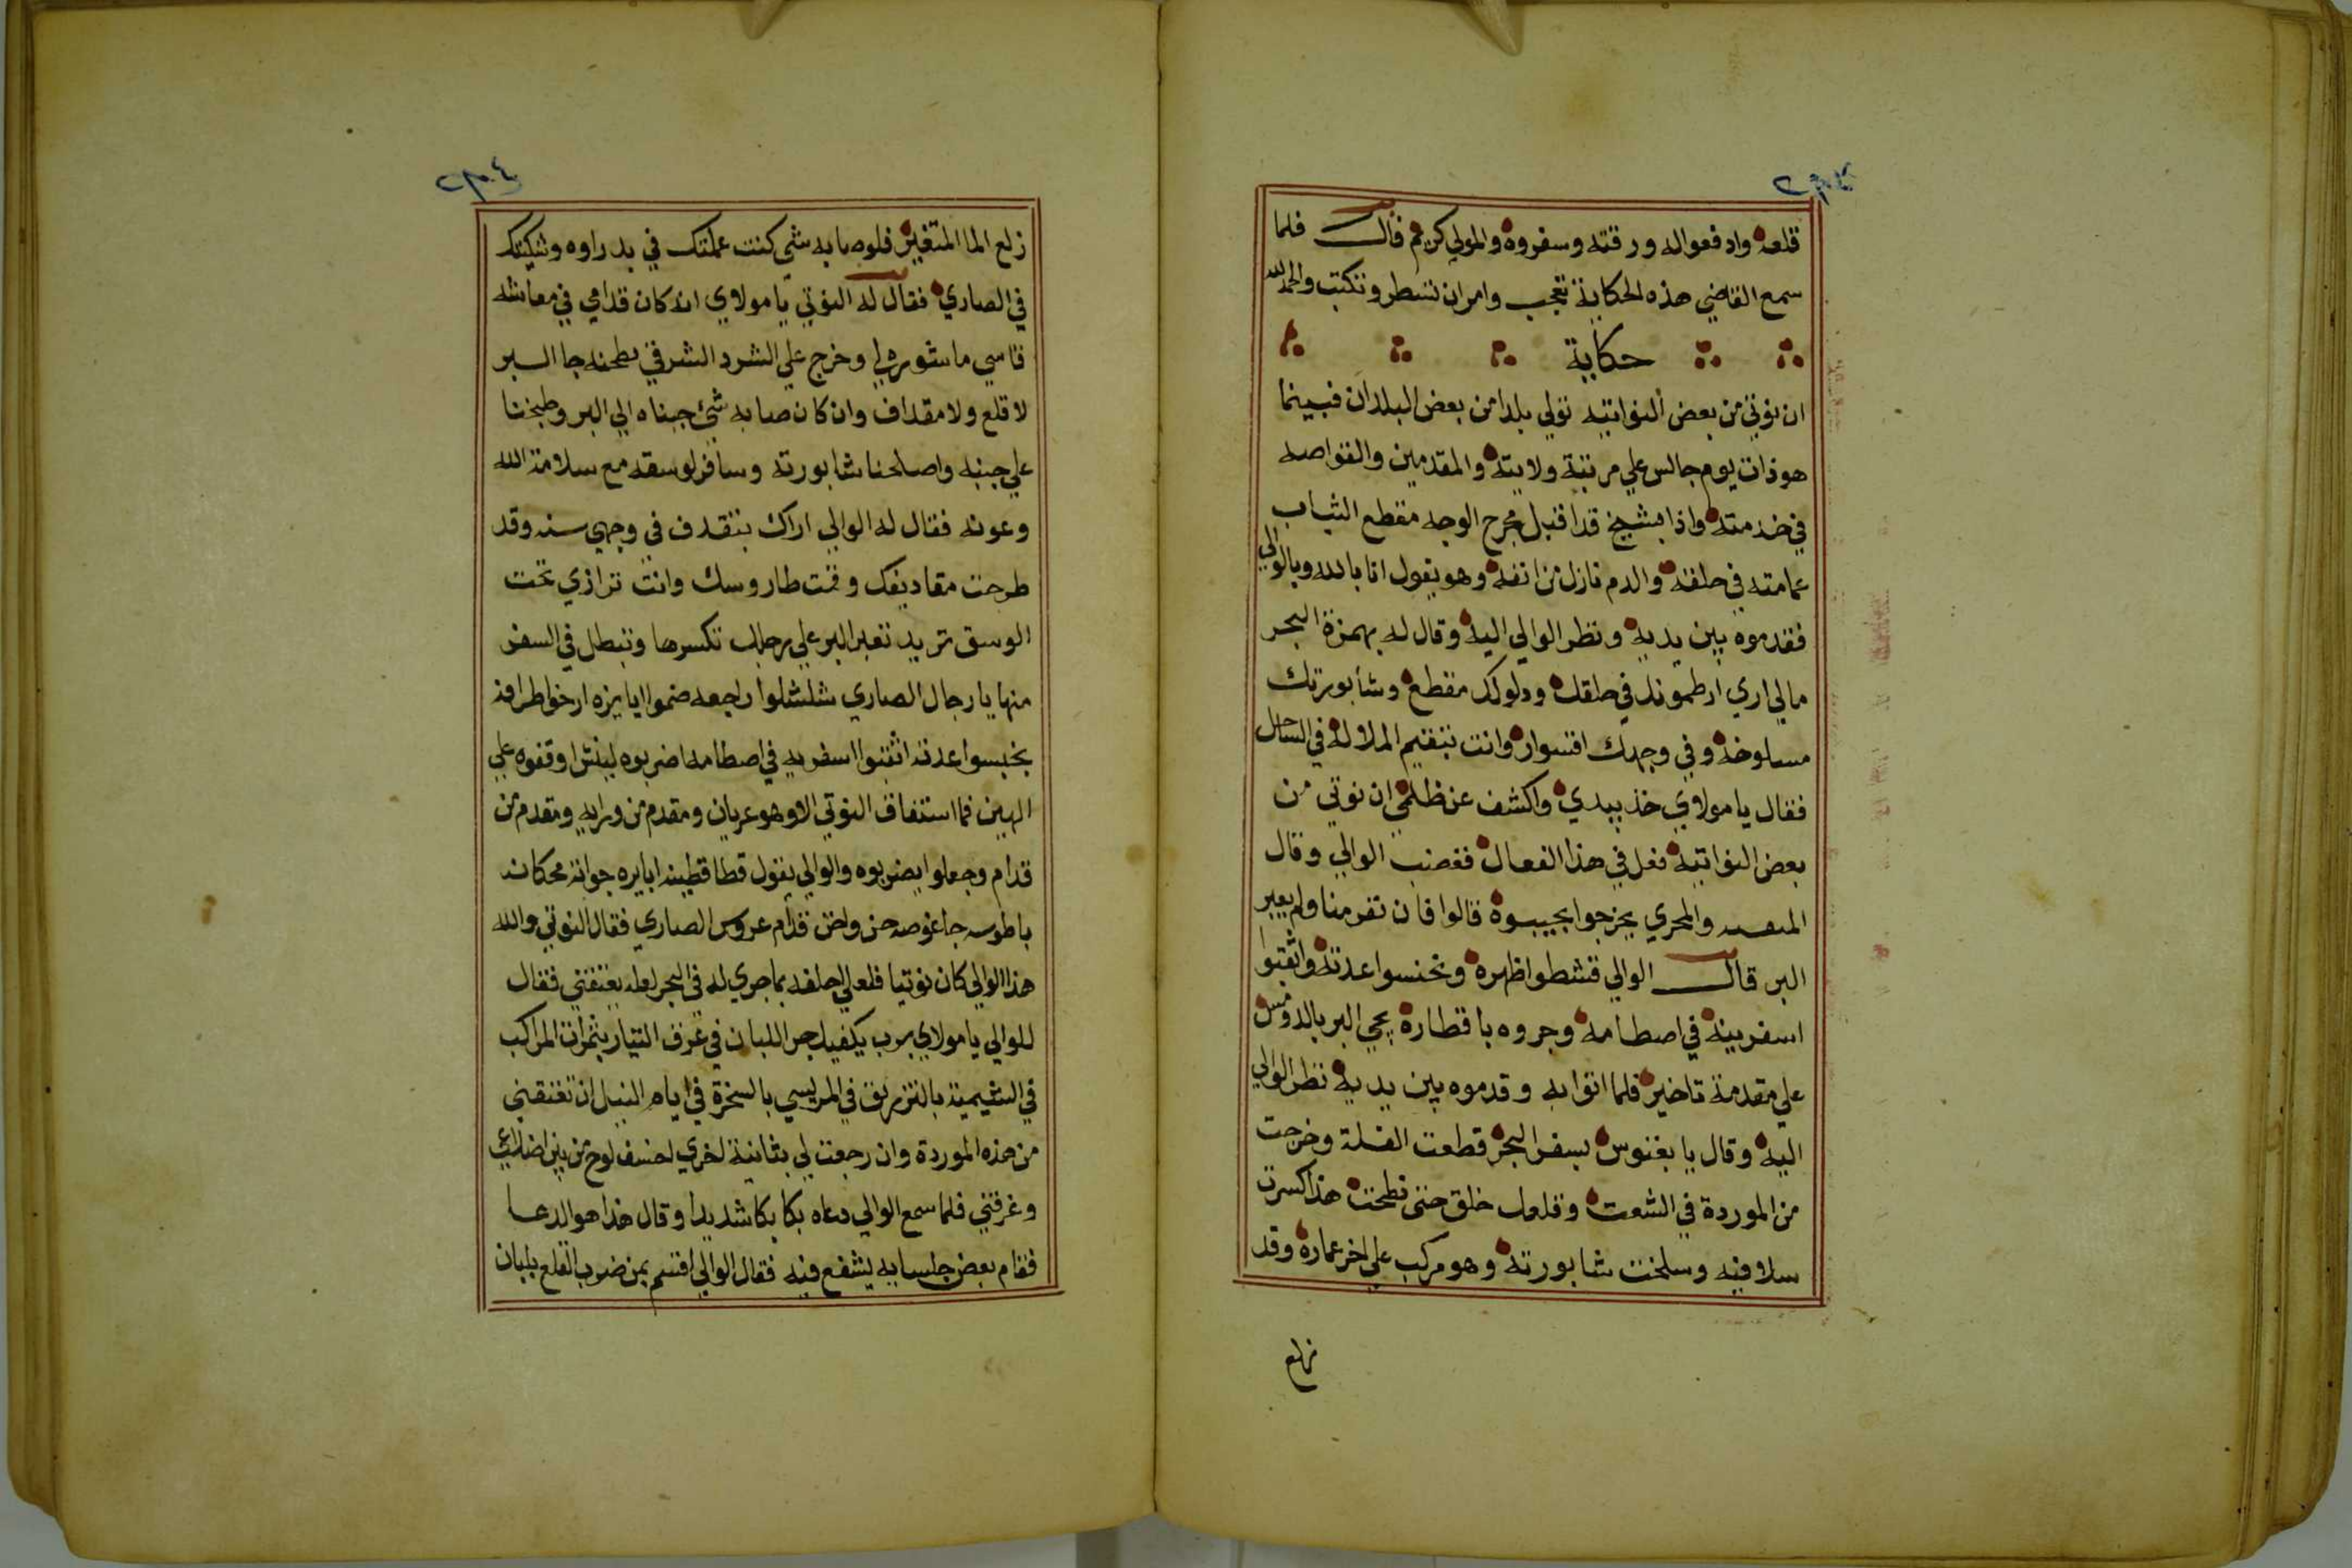 قلعه وادفعواله ورقته وسفروه والمولي كريم قال فلما
سمع القاضي هذه الحكاية تعجب وامران تسطر وتكتب والحمدلله
حكاية
ان نوتي من بعض النواتيه تولي بلدا من بعض البلدان فبينما
هو ذات يوم جالس علي مرتبة ولايته والمقدمين والقواصه
في خدمته واذا بشيخ قد اقبل مجرح الوجه مقطع الثياب
عمامته في حلقه والدم نازل من انفه وهو يقول انا بالله وبالوالي
فقدموه بين يديه ونظر الوالي اليه وقال له بهمزة البحر
مالي اري ارطمونك في حلقك ودلوكك مقطع وشابورتك
مسلوخه وفي وجهك اقسوار وانت بتقيم الملاله في الساحل
فقال يا مولاي خذ بيدي واكشف عن ظلمي ان نوتي من
بعض النواتيه فعل في هذا الفعال فغضب الوالي وقال
والمحري يخرجوا يجيبوه قالوا فان تفرمنا ولم يعبر
البر قال الوالي قشطوا ظهره وخنسوا عدته واثقبوا
اسفرينه في اصطامه وجروه باقطاره يجي البر بالدومس
علي مقدمة تاخير فلما اتوا به وقدموه بين يديه نظر الوالي
اليه وقال يا بغنوس بسفر البحر قطعت الفلة وخرجت
من الموردة في الشعت وقلعك خلق حتى نطحت هذا كسرت
سلاقيه وسلخت شابورته وهو مركب علي اخر عماره وقد
زلع
زلع الما المتغير فلو صابه شي كنت عملتك في بدراوه وشكيتك
في الصاري فقال له النوتي يا مولاي انه كان قدامي في معاشه
قاسي ما شورلي وخرج علي الشرد الشرقي بطحنه جا البر
لا قلع ولا مقداف وان كان صابه شئ جبناه الي البر وطبخنا
علي جنبه واصلحنا شابورته وسافر لوسقه مع سلامة الله
وعونه فقال له الوالي اراك بتقدف في وجهي سنه وقد
طرحت مقاديفك وقمت طاروسك وانت ترازي تحت
الوسق تريد تعبر البر علي رجلك تكسرها وتبطل في السفر
منها يا رجال الصاري شلشلوا راجعه ضموا ايايزه ارخوا طرافه
بخنسوا عدته اثقبوا اسفرينه في اصطامه اضربوه لبنش اوقفوه علي
الهين فما استفاق النوتي الا وهو عريان ومقدم من ورايه ومقدم من
قدام وجعلوا يضربوه والوالي يقول قطا قطينه ايايره جوانه محكانه
باطوسه جا غوصه حن واحن قدام عروس الصاري فقال النوتي والله
هذا الوالي كان نوتيا فلعلي احلفه بما جري له في البحر لعله يعتقني فقال
للوالي يا مولاي برب يكفيك جر اللبان في غرف التيار بثمرات المراكب
في الشيمية بالتزريق في المريسي بالسخرة في ايام النيل ان تعتقني
من هذه الموردة وان رجعت لي بثانية اخري احسف لوح من بين اضلاعي
وغرقني فلما سمع الوالي دعاه بكا بكا شديدا وقال هذا هو الدعا
فقام بعض جلسايه يشفع فيه فقال الوالي اقسم بمن ضرب القلع بلبان